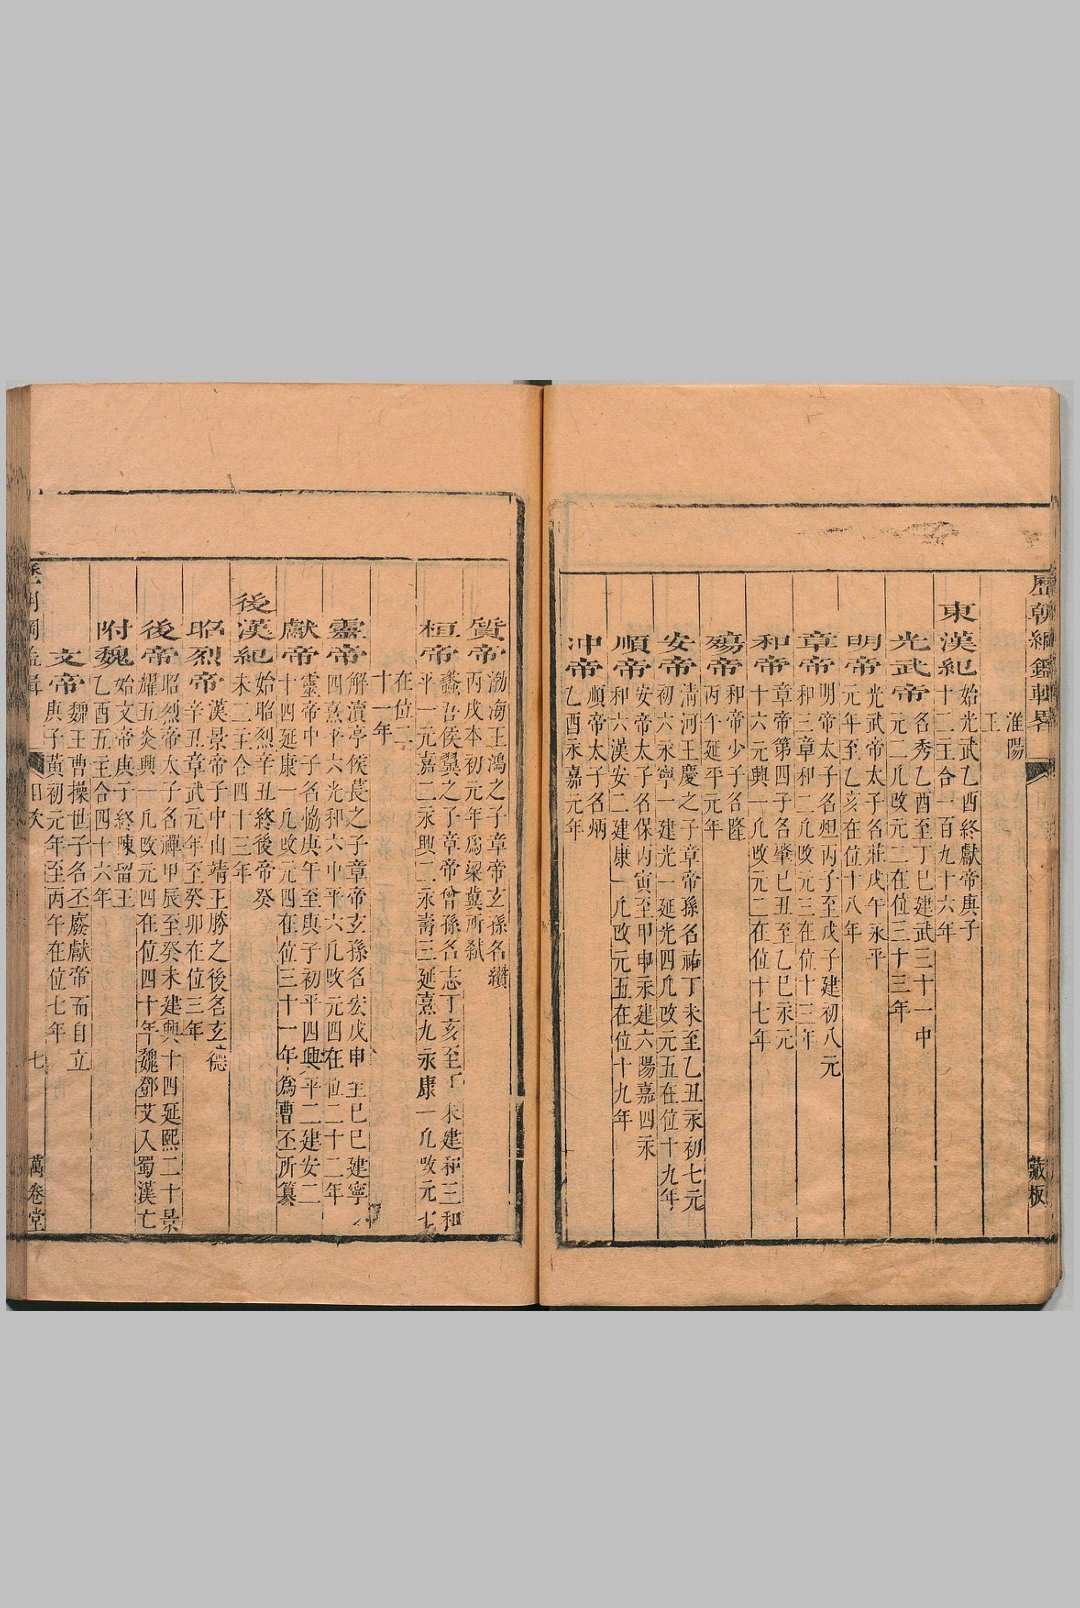 歷朝綱鑑輯畧
藏板
淮陽
王
東漢紀
始光武乙酉終獻帝庚子
十二主合一百九十六年
光武帝
名秀乙酉至丁巳建武三十一中
元二凡改元二在位三十三年
明帝
光武帝太子名莊戊午永平
元年至乙亥在位十八年
章帝
明帝太子名炟丙子至戊子建初八元
和三章和二凡改元三在位十三年
和帝
章帝第四子名肇己丑至乙巳永元
十六元興一凡改元二在位十七年
殤帝
和帝少子名隆
丙午延平元年
安帝
清河王慶之子章帝孫名祐丁未至乙丑永初七元
初六永寧一建光一延光四凡改元五在位十九年
順帝
安帝太子名保丙寅至甲申永建六陽嘉四永
和六漢安二建康一凡改元五在位十九年
冲帝
順帝太子名炳
乙酉永嘉元年
質帝
渤海王鴻之子章帝玄孫名纘
丙戌本初元年爲梁冀所弒
桓帝
蠡吾侯翼之子章帝曾孫名志丁亥至丁未建和三和
平一元嘉二永興二永壽三延熹九永康一凡改元七
在位二
十一年
靈帝
解瀆亭侯萇之子章帝玄孫名宏戊申至己巳建寧
四熹平六光和六中平六凡改元四在位二十二年
獻帝
靈帝中子名恊庚午至庚子初平四興平二建安二
十四延康一凡改元四在位三十一年爲曹丕所篡
後漢紀
始昭烈辛丑終後帝癸
未二主合四十三年
昭烈帝
漢景帝子中山靖王勝之後名玄德
辛丑章武元年至癸卯在位三年
後帝
昭烈帝太子名禪甲辰至癸未建興十四延熙二十景
耀五炎興一凡改元四在位四十年魏鄧艾入蜀漢亡
附魏
始文帝庚子終陳留王
乙酉五主合四十六年
文帝
魏王曹操世子名丕廢獻帝而自立
庚子黃初元年至丙午在位七年
目次
七
萬卷堂